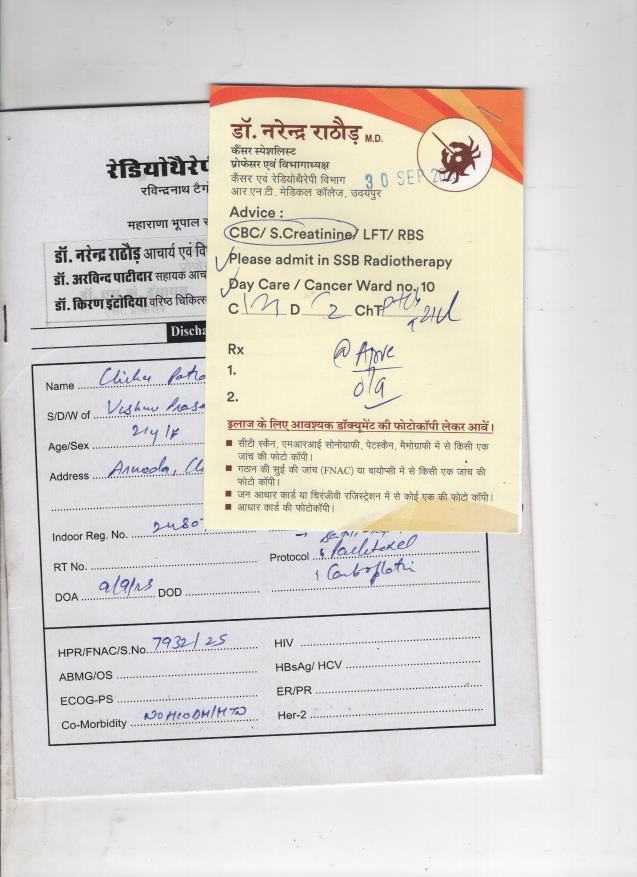 डॉ. नरेन्द्र राठौड़ M.D.
कैंसर स्पेशलिस्ट
प्रोफेसर एवं विभागाध्यक्ष
कैंसर एवं रेडियोथैरेपी विभाग
आर.एन.टी. मेडिकल कॉलेज, उदयपुर
30 SEP
Advice :
CBC/ S.Creatinine/ LFT/ RBS
Please admit in SSB Radiotherapy
Day Care / Cancer Ward no. 10
C D 2 ChT
Rx
1.
2.
इलाज के लिए आवश्यक डॉक्यूमेंट की फोटोकॉपी लेकर आवें।
सीटी स्कैन, एमआरआई सोनोग्राफी, पेटस्कैन, मैमोग्राफी में से किसी एक
जांच की फोटो कॉपी।
गठान की सुई की जांच (FNAC) या बायोप्सी में से किसी एक जांच की
फोटो कॉपी।
जन आधार कार्ड या चिरंजीवी रजिस्ट्रेशन में से कोई एक की फोटो कॉपी।
आधार कार्ड की फोटोकॉपी।
रेडियोथैरेपी
रविन्द्रनाथ टैगो
महाराणा भूपाल
डॉ. नरेन्द्र राठौड़ आचार्य एवं वि
डॉ. अरविन्द पाटीदार सहायक आच
डॉ. किरण इंटोदिया वरिष्ठ चिकित्स
Discha
Name
S/D/W of Vishnu
Age/Sex 21y/F
Address
Indoor Reg. No.
RT No.
Protocol Paclitaxel
Carboplatin
DOA 9/9/25 DOD
HPR/FNAC/S.No. 7932/25
HIV
ABMG/OS
HBsAg/ HCV
ECOG-PS
ER/PR
Co-Morbidity NO H/O DM/HTN
Her-2